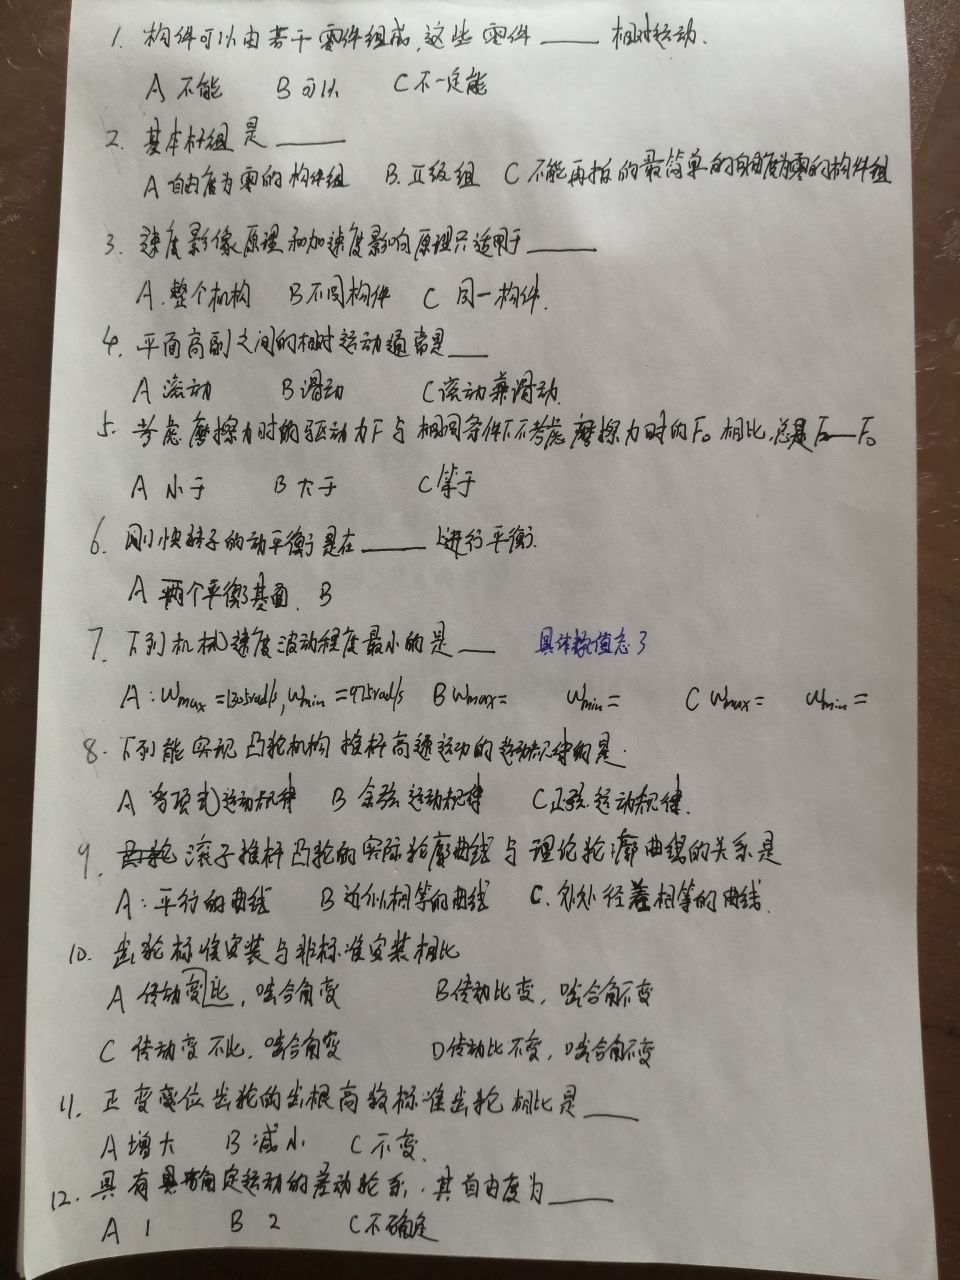 1. 构件可以由若干零件组成,这些零件____相对运动.
A 不能 B 可以 C 不一定能
2. 基本杆组是____
A 自由度为零的构件组 B.Ⅱ级组 C 不能再拆的最简单的自由度为零的构件组
3. 速度影像原理和加速度影响原理只适用于____
A.整个机构 B 不同构件 C 同一构件.
4. 平面高副之间的相对运动通常是___
A 滚动 B 滑动 C 滚动兼滑动.
5. 考虑摩擦力时的驱动力F与相同条件下不考虑摩擦力时的F₀相比,总是F___F₀
A 小于 B 大于 C 等于
6. 刚性转子的动平衡是在____上进行平衡.
A 两个平衡基面. B
7. 下列机械速度波动程度最小的是___ 具体数值忘了
A:ωmax=1305rad/s,ωmin=975rad/s B ωmax= ωmin= C ωmax= ωmin=
8. 下列能实现凸轮机构推杆高速运动的运动规律的是.
A 多项式运动规律 B 余弦运动规律 C 正弦运动规律.
9. 滚子推杆凸轮的实际轮廓曲线与理论轮廓曲线的关系是
A:平行的曲线 B 近似相等的曲线 C.处处径差相等的曲线.
10. 齿轮标准安装与非标准安装相比
A 传动变比,啮合角变 B 传动比变,啮合角不变
C 传动变不比,啮合角变 D 传动比不变,啮合角不变
11. 正变变位齿轮的齿根高较标准齿轮相比是____
A 增大 B 减小 C 不变.
12. 具有确定运动的差动轮系,其自由度为____
A 1 B 2 C 不确定